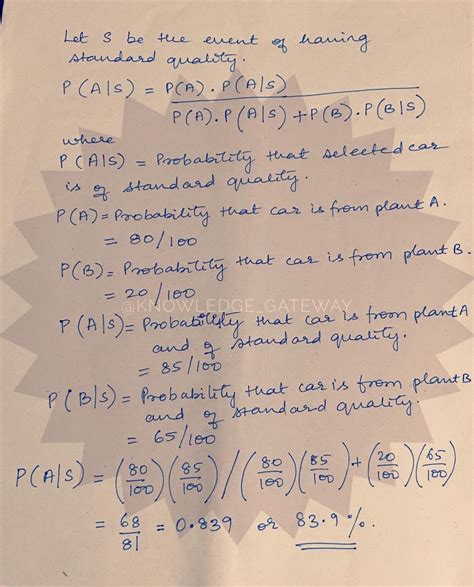 Let S be the event of having
standard quality.
P(A|S) = P(A).P(A|S)
P(A).P(A|S)+P(B).P(B|S)
where
P(A|S) = Probability that selected car
is of standard quality.
P(A)=Probability that car is from plant A.
= 80/100
P(B)= Probability that car is from plant B.
= 20/100
@KNOWLEDGE_GATEWAY
P(A|S)= Probability that car is from plant A
and of standard quality.
= 85/100
P(B|S)= Probability that car is from plant B
and of standard quality.
= 65/100
P(A|S) = (80/100)(85/100)/(80/100)(85/100)+(20/100)(65/100)
= 68/81 = 0.839 or 83.9%.